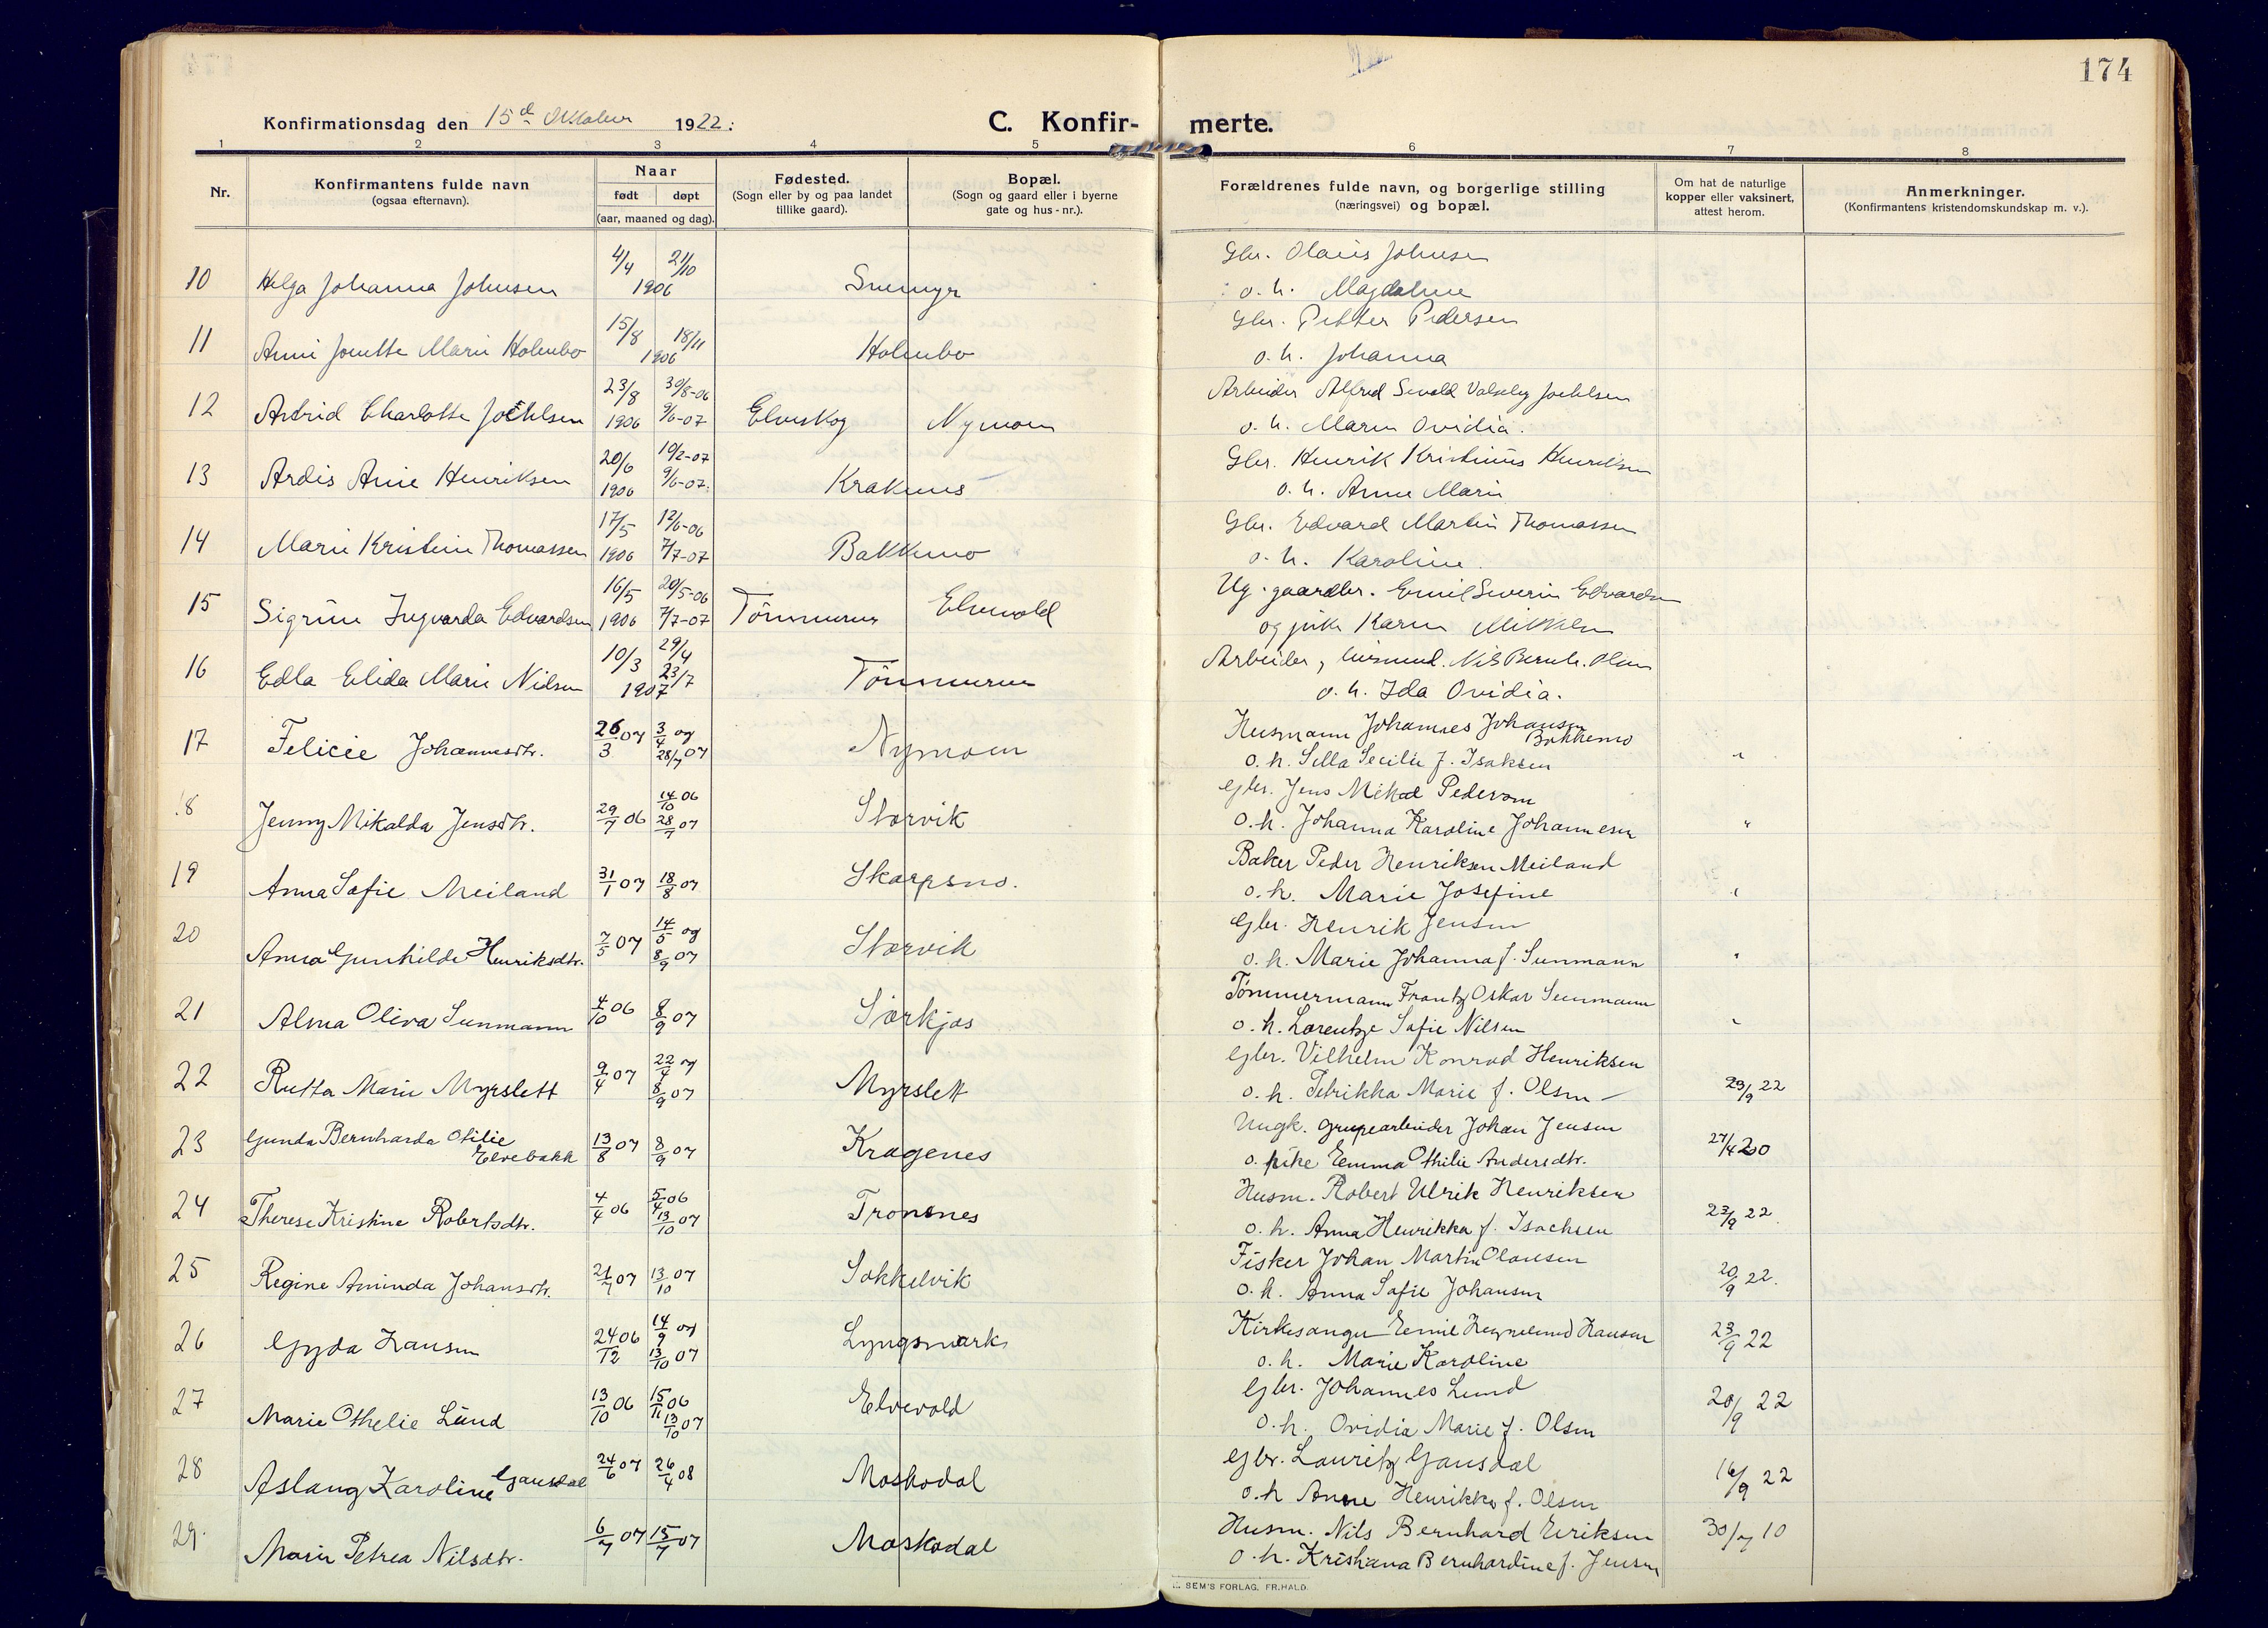 174
Konfirmationsdag den 15de Oktober 1922.
C. Konfir- merte.
1 2 3 4 5 6 7 8
Nr.
Konfirmantens fulde navn
(ogsaa efternavn).
Naar
født døpt
(aar, maaned og dag).
Fødested.
(Sogn eller by og paa landet
tillike gaard).
Bopæl.
(Sogn og gaard eller i byerne
gate og hus-nr.).
Forældrenes fulde navn, og borgerlige stilling
(næringsvei) og bopæl.
Om hat de naturlige
kopper eller vaksinert,
attest herom.
Anmerkninger.
(Konfirmantens kristendomskundskap m. v.).
10 Helga Johanna Johnsen 4/4 21/10 1906 Snemyr Gbr. Olaus Johnsen
o. h. Magdalene
11 Anni Jonette Marie Holmbo 15/8 18/11 1906 Holmbo Gbr. Petter Pedersen
o. h. Johanna
12 Astrid Charlotte Joehlsen 23/8 1906 30/8-06 9/6-07 Elveskog Nymoen Arbeider Alfred Sevald Valseby Joehlsen
o. h. Maren Ovidia.
13 Ardis Anie Henriksen 20/6 1906 19/2-07 9/6-07 Krakenes Gbr. Henrik Kristinus Henriksen
o. h. Anne Marie
14 Marie Kristine Thomassen 17/5 1906 12/6-06 7/7-07 Bakkemo Gbr. Edvard Martin Thomassen
o. h. Karoline.
15 Sigrun Ingvarda Edvardsen 16/5 1906 20/5-06 7/7-07 Tömmernes Elvevold Ug. gaardbr. Emil Severin Edvardsen
og pike Karen Mikkelsen
16 Edla Elida Marie Nilsen 10/3 29/4 23/7 1907 Tömmernes Arbeider, Nils Bernh. Olsen
o. h. Ida Ovidia.
17 Felicie Johannesdtr. 26/3 07 3/4 og 28/7 07 Nymoen Husmann Johannes Johansen
Bakkemo
o. h. Silla Secilie f. Isaksen "
18 Jenny Mikalda Jensdtr. 29/7 06 14/10 06 28/7 07 Storvik Gbr. Jens Mikal Pedersen
o. h. Johanna Karoline Johannesen "
19 Anna Sofie Meiland 31/1 07 18/8 07 Skarpsno. Baker Peder Henriksen Meiland
o. h. Marie Josefine "
20 Anna Gunhilde Henriksdtr. 7/5 07 14/5 og 8/9 07 Storvik Gbr. Henrik Jensen
o. h. Marie Johanna f. Sunmann "
21 Alma Oliva Sunmann 4/10 06 8/9 07 Sörkjos Tömmermann Frantz Oskar Sunmann
o. h. Lorentze Sofie Nilsen "
22 Rutta Marie Myrslett 9/4 07 22/4 og 8/9 07 Myrslett Gbr. Vilhelm Konrad Henriksen
o. h. Petrikka Marie f. Olsen 23/9 22
23 Gunda Bernharda Otilie
Elvebakk 13/8 07 8/9 07 Kragenes Ungk. grupearbeider Johan Jensen
o. pike Emma Othilie Andersdtr. 27/4 20
24 Therese Kristine Robertsdtr. 4/4 06 5/4 06 13/10 07 Tronsnes Husm. Robert Ulrik Henriksen
o. h. Anna Henrikka f. Isachsen 23/9 22
25 Regine Aminda Johansdtr. 21/7 07 13/10 07 Sokkelvik Fisker Johan Martin Olausen
o. h. Anna Sofie Johansen 20/9 22.
26 Gyda Hansen 24/12 06 14/9 og 13/10 07 Lyngsmark Kirkesanger Emil Hansen
o. h. Marie Karoline 23/9 22
27 Marie Othelie Lund 13/10 06 15/11 06 13/10 07 Elvevold Gbr. Johannes Lund
o. h. Ovidia Marie f. Olsen 20/9 22
28 Aslaug Karoline Gausdal 24/6 07 26/4 08 Moskodal Gbr. Lauritz Gausdal
o. h Anne Henrikke f. Olsen 16/9 22
29. Marie Petrea Nilsdtr. 6/7 07 15/7 07 Moskodal Husm. Nils Bernhard Eriksen
o. h. Kristiana Bernhardine f. Jensen 30/7 10
SEM'S FORLAG, FR.HALD.